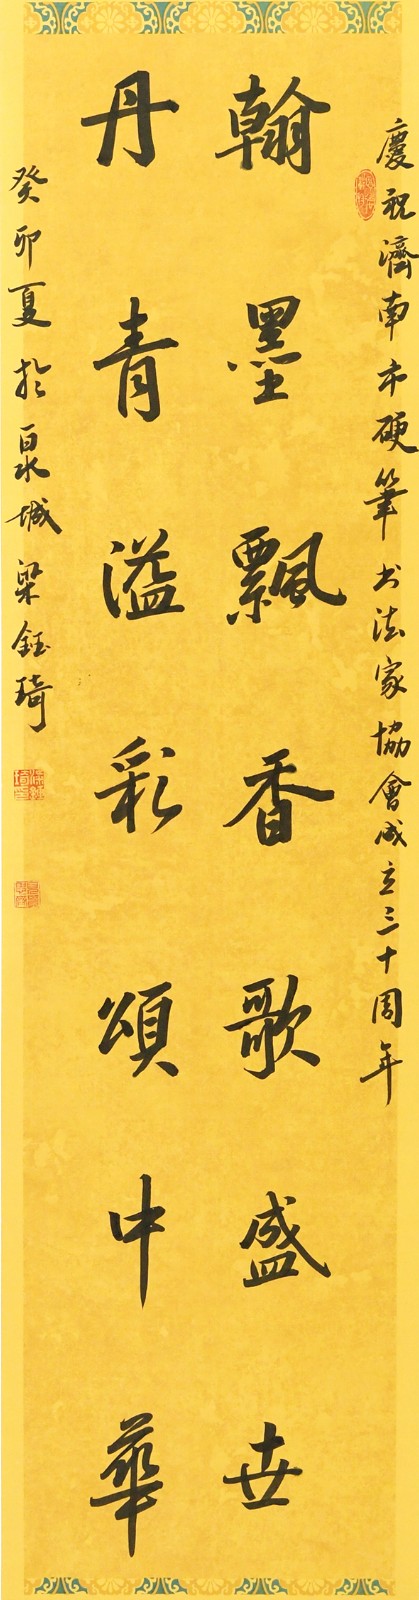 慶祝濟南市硬筆书法家協會成立三十周年
翰墨飄香歌盛世
丹青溢彩頌中華
癸卯夏於泉城梁鈺琦